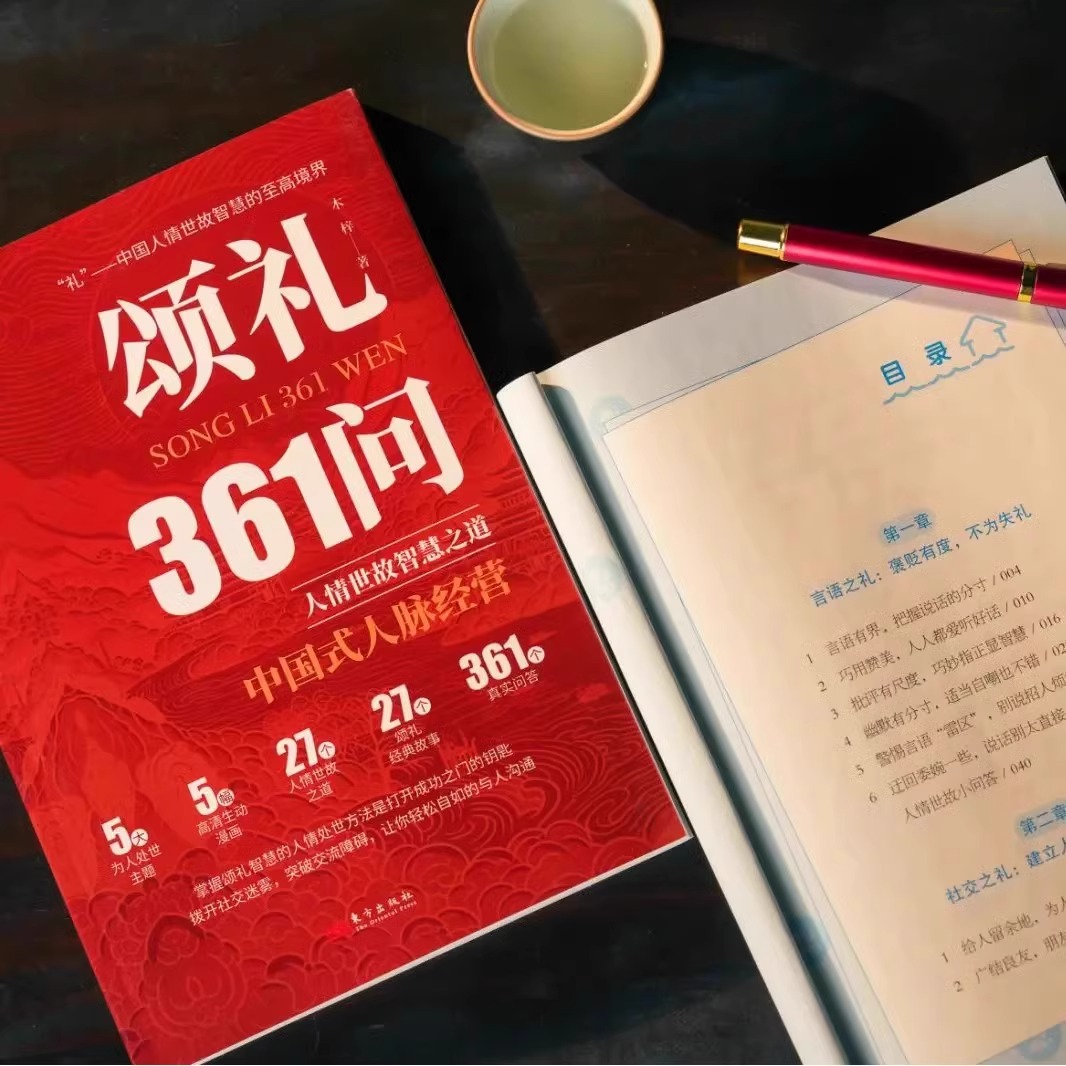 “礼”——中国人情世故智慧的至高境界
木梓—著
颂礼
SONG LI 361 WEN
361问
人情世故智慧之道
中国式人脉经营
5大
为人处世
主题
5幅
高清生动
漫画
27个
人情世故
之道
27个
颂礼
经典故事
361个
真实问答
掌握颂礼智慧的人情处世方法是打开成功之门的钥匙
拨开社交迷雾，突破交流障碍，让你轻松自如的与人沟通
東方出版社
The Oriental Press
目录
第一章
言语之礼：褒贬有度，不为失礼
1 言语有界，把握说话的分寸 / 004
2 巧用赞美，人人都爱听好话 / 010
3 批评有尺度，巧妙指正显智慧 / 016
4 幽默有分寸，适当自嘲也不错 / 02
5 警惕言语“雷区”，别说招人烦
6 迂回委婉一些，说话别太直接
人情世故小问答 / 040
第二章
社交之礼：建立人
1 给人留余地，为人
2 广结良友，朋友